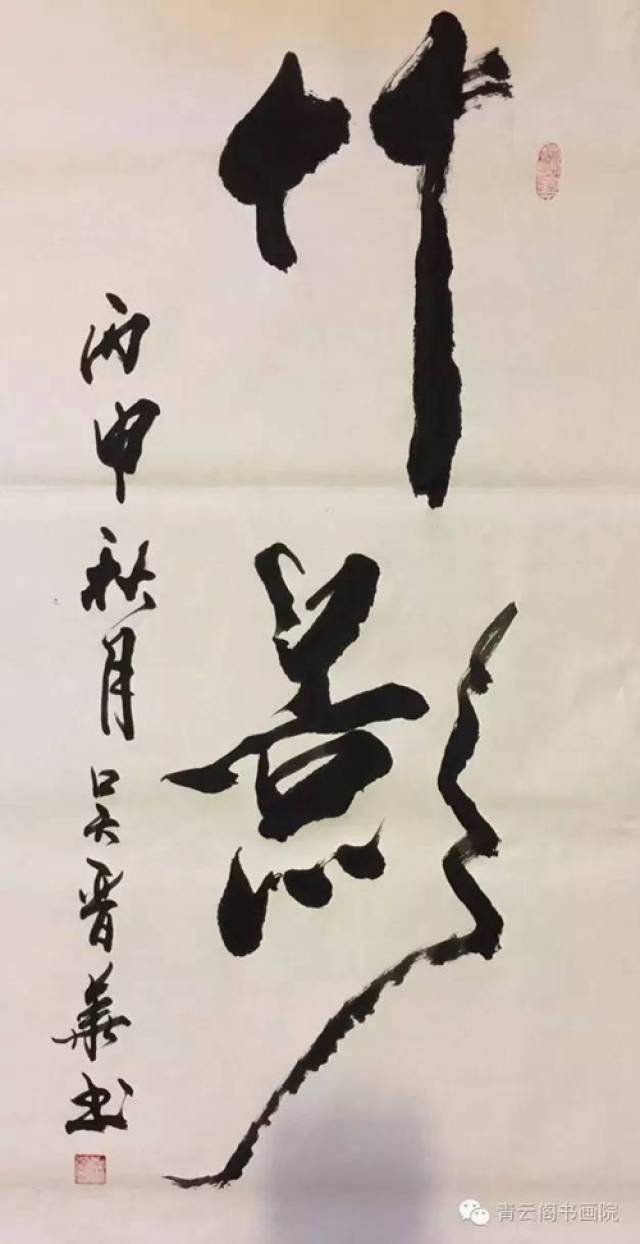 竹影
丙申秋月吴晋華书
青云阁书画院